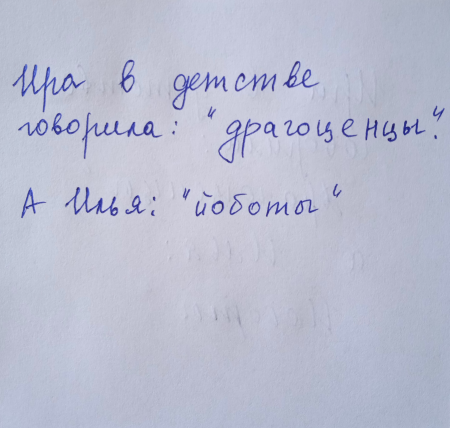 Ира в детстве
говорила: "драгоценцы".
А Илья: "йоботы"